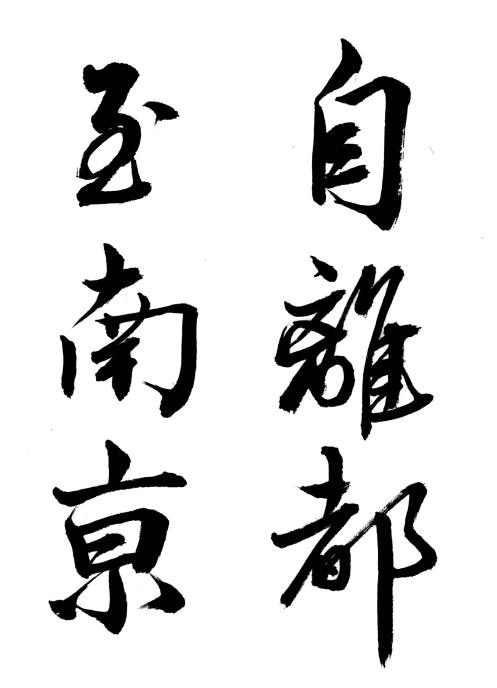 自離都
至南京